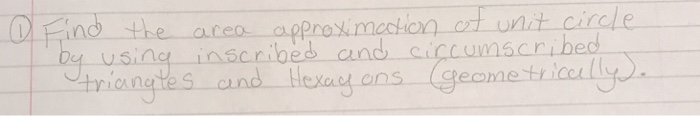 ① Find the area approximation of unit circle
by using inscribed and circumscribed
triangles and Hexagons (geometrically).